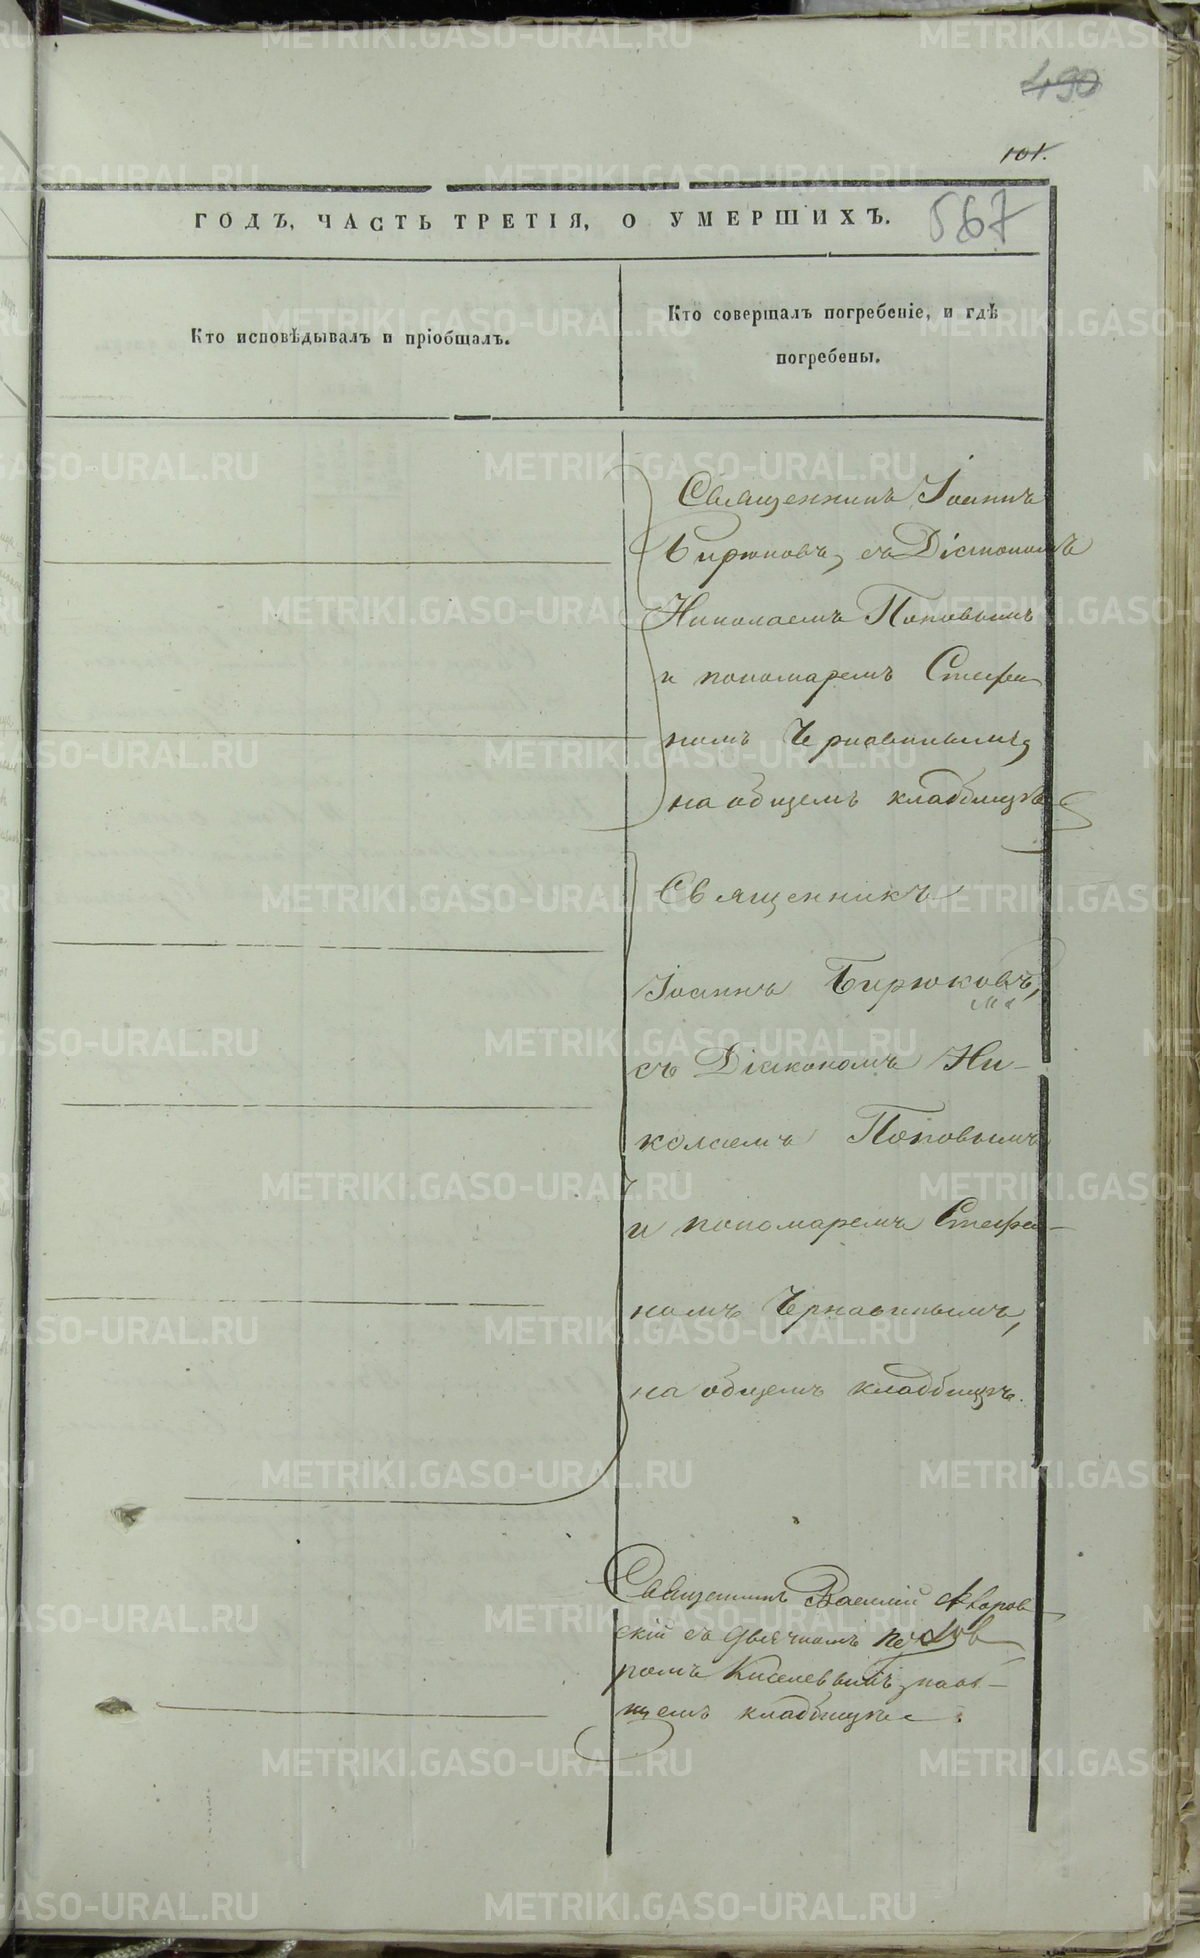 490
101.
ГОДЪ, ЧАСТЬ ТРЕТІЯ, О УМЕРШИХЪ.
567
Кто исповѣдывалъ и пріобщалъ.
Кто совершалъ погребеніе, и гдѣ
погребены.
Священникъ Іоаннъ
Бирюковъ, съ Діакономъ
Николаемъ Поповымъ
и пономаремъ Стефа
номъ Чернавинымъ,
на общемъ кладбищѣ
Священникъ
Іоаннъ Бирюковъ,
съ Діакономъ Ни-
колаемъ Поповымъ
и пономаремъ Стефа-
номъ Чернавинымъ,
на общемъ кладбищѣ.
Священникъ Василій
скій съ Дьячкомъ
ромъ Киселевымъ, на об-
щемъ кладбищѣ.
METRIKI.GASO-URAL.RU